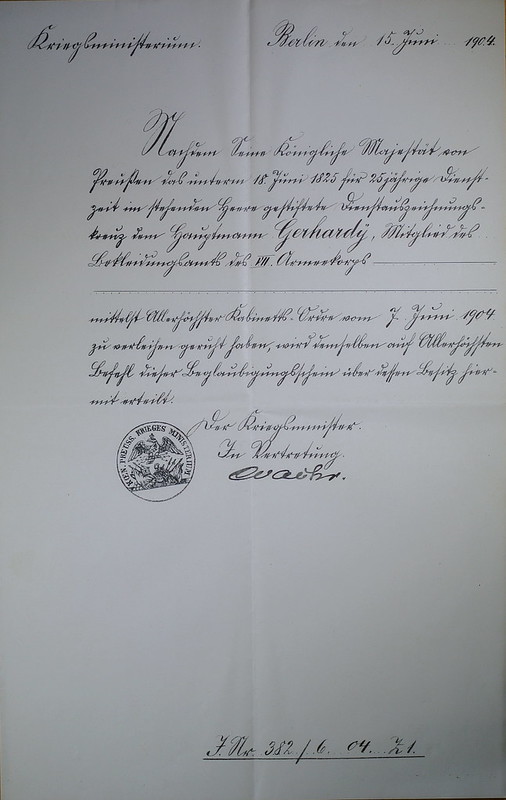 Kriegsministerium. Berlin den 15. Juni 1904.
Nachdem Seine Königliche Majestät von
Preußen das unterm 18. Juni 1825 für 25jährige Dienst-
zeit im stehenden Heere gestiftete Dienstauszeichnungs-
kreuz dem Hauptmann Gerhardÿ, Mitglied des
Bekleidungsamts des VII. Armeekorps
mittelst Allerhöchster Kabinetts-Ordre vom 7. Juni 1904
zu verleihen geruht haben, wird demselben auf Allerhöchsten
Befehl dieser Beglaubigungsschein über dessen Besitz hier-
mit erteilt.
Der Kriegsminister.
In Vertretung.
KÖN. PREUSS. KRIEGES MINISTERIUM
J. Nr. 382/6. 04. Z1.